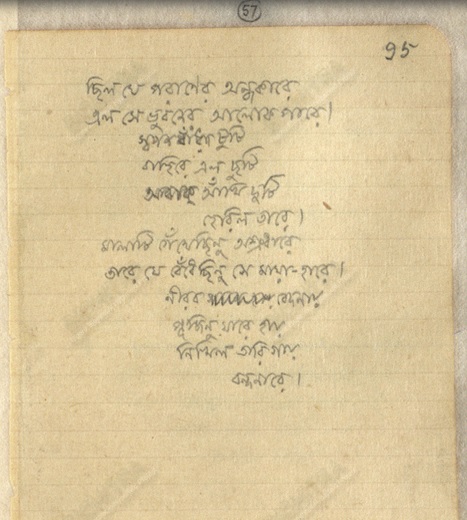 57
95
ছিল যে পরাণের অন্ধকারে
এল সে ভুবনের আলোক পারে।
স্বপন বাধা টুটি
বাহিরে এল ছুটি
অবাক্ আঁখি দুটি
হেরিল তারে।
মালাটি গেঁথেছিনু অশ্রুধারে
তারে যে বেঁধেছিনু সে মায়া-হারে।
নীরব বেদনায়
পূজিনু যারে হায়
নিখিল তারি গায়
বন্দনারে।